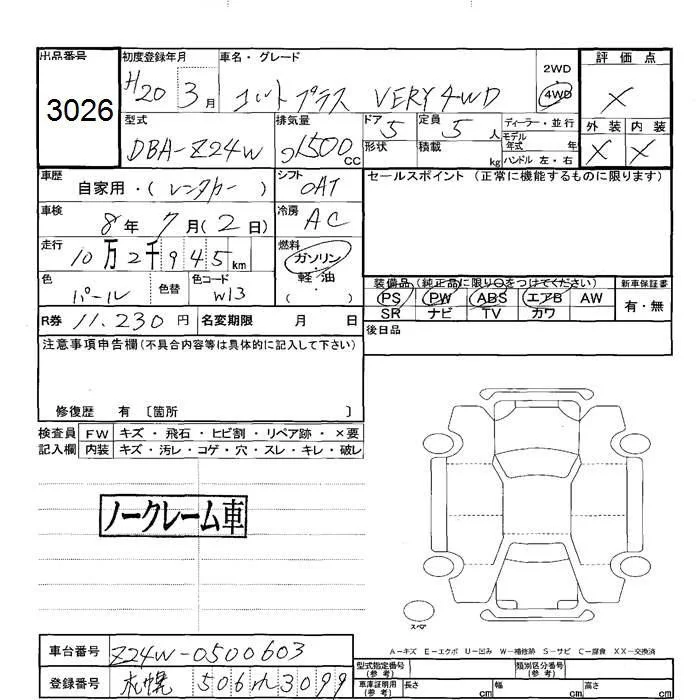 出品番号 初度登録年月 車名・グレード 2WD 評価点
3026 H20 3月 コルトプラス VERY 4WD 4WD X
型式 排気量 ドア 定員 ディーラー・並行 外装 内装
DBA-Z24W 1500cc 5 5人 モデル年式 年 X X
形状 積載 kg ハンドル 左・右
車歴 自家用・(レンタカー) シフト OAT セールスポイント (正常に機能するものに限ります)
車検 8年7月(2日) 冷房 AC
走行 10万2千945km 燃料 ガソリン・軽・油 ( )
色 パール 色替 色コード W13 装備品(純正品に限り○をつけてください) 新車保証書
PS PW ABS エアB AW 有・無
SR ナビ TV カワ
R券 11.230円 名変期限 月 日 後日品
注意事項申告欄(不具合内容等は具体的に記入して下さい)
修復歴 有 〔箇所 〕
検査員 FW キズ・飛石・ヒビ割・リペア跡・×要
記入欄 内装 キズ・汚レ・コゲ・穴・スレ・キレ・破レ
ノークレーム車
スペア
A-キズ E-エクボ U-凹み W-補修跡 S-サビ C-腐食 XX-交換済
車台番号 Z24W-0500603 型式指定番号(参考) 類別区分番号(参考)
登録番号 札幌 506 3099 車庫証明用(参考) 長さ cm 幅 cm 高さ cm